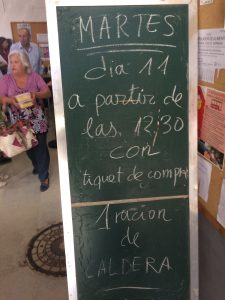 MARTES
dia 11
a partir de
las 12:30
con
tiquet de compra
1 racion
de
CALDERA